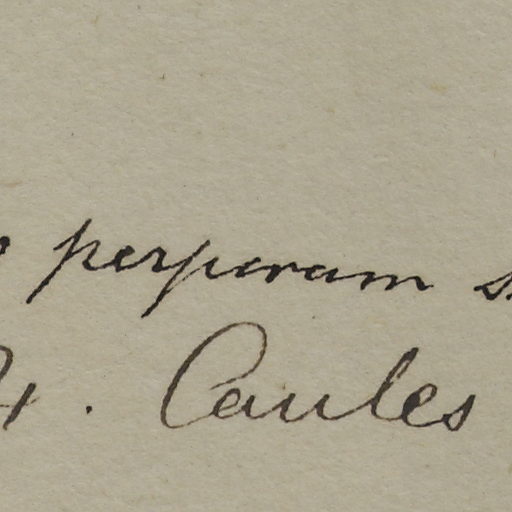 perperam
4. Caules